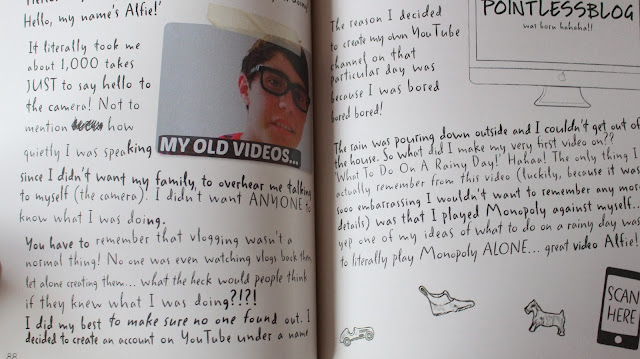 Hello, my name's Alfie!'
It literally took me
about 1,000 takes
JUST to say hello to
the camera! Not to
mention how
quietly I was speaking
since I didn't want my family, to overhear me talking
to myself (the camera). I didn't want ANYONE to
know what I was doing.
You have to remember that vlogging wasn't a
normal thing! No one was even watching vlogs back then
let alone creating them... what the heck would people think
if they knew what I was doing?!?!
I did my best to make sure no one found out. I
decided to create an account on YouTube under a name
88
MY OLD VIDEOS...
The reason I decided
to create my own YouTube
channel on that
particular day was
because I was bored
bored bored!
POINTLESSBLOG
was born hahaha!!
The rain was pouring down outside and I couldn't get out of
the house. So what did I make my very first video on??
'What To Do On A Rainy Day!' Hahaa! The only thing I
actually remember from this video (luckily, because it was
sooo embarrassing I wouldn't want to remember any more
details) was that I played Monopoly against myself...
yep one of my ideas of what to do on a rainy day was
to literally play Monopoly ALONE... great video Alfie!
SCAN
HERE